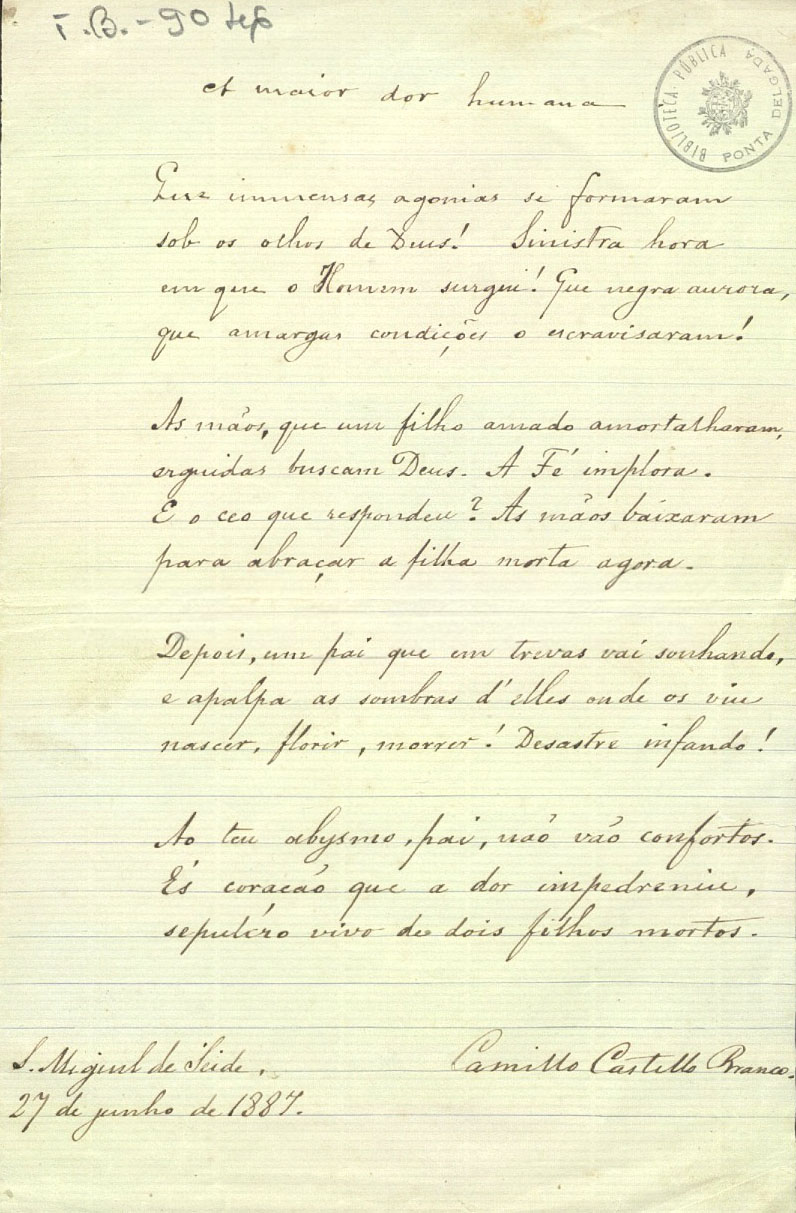 T.B. - 90 Sep
BIBLIOTECA PÚBLICA PONTA DELGADA
A maior dor humana
Que immensas agonias se formaram
sob os olhos de Deus! Sinistra hora
em que o Homem surgiu! Que negra aurora,
que amargas condições o escravisaram!
As mãos, que um filho amado amortalharam,
erguidas buscam Deus. A Fé implora.
E o ceo que respondeu? As mãos baixaram
para abraçar a filha morta agora.
Depois, um pai que em trevas vai sonhando,
e apalpa as sombras d'elles onde os viu
nascer, florir, morrer! Desastre infando!
Ao teu abysmo, pai, não vão confortos.
És coração que a dor impedreniu,
sepulcro vivo de dois filhos mortos.
S. Miguel de Seide,
27 de junho de 1887.
Camillo Castello Branco.